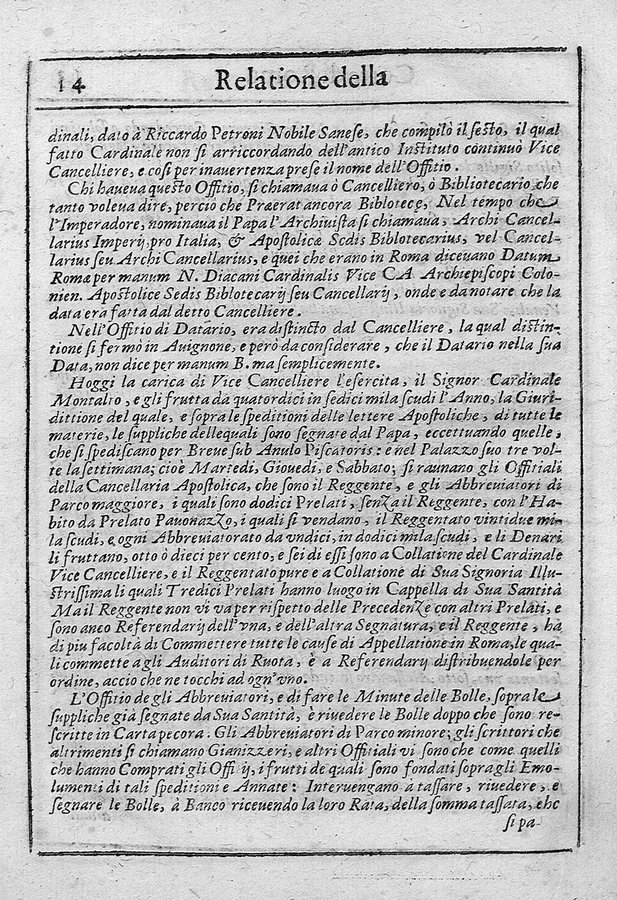 14 Relatione della
dinali, dato à Riccardo Petroni Nobile Sanese, che compilò il sesto, il qual
fatto Cardinale non si arriccordando dell'antico Instituto continuò Vice
Cancelliere, e così per inauertenza prese il nome dell'Offitio.
Chi haueua questo Offitio, si chiamaua ò Cancelliero, ò Bibliotecario, che
tanto voleua dire, perciò che Præerat ancora Biblotecę, Nel tempo che
l'Imperadore, nominaua il Papa l'Archiuista si chiamaua, Archi Cancel-
larius Imperij pro Italia, & Apostolicæ Sedis Biblotecarius, vel Cancel-
larius seu Archi Cancellarius, e quei che erano in Roma diceuano Datum
Romæ per manum N. Diacani Cardinalis Vice CA Archiepiscopi Colo-
nien. Apostolice Sedis Biblotecarij seu Cancellarij, onde e da notare che la
data era fatta dal detto Cancelliere.
Nell'Offitio di Datario, era distincto dal Cancelliere, la qual distin-
tione si fermò in Auignone, e però da considerare, che il Datario nella sua
Data, non dice per manum B. ma semplicemente.
Hoggi la carica di Vice Cancelliere l'esercita, il Signor Cardinale
Montalto, e gli frutta da quatordici in sedici mila scudi l'Anno, la Giuri-
dittione del quale, e sopra le speditioni delle lettere Apostoliche, di tutte le
materie, le suppliche dellequali sono segnate dal Papa, eccettuando quelle,
che si spediscano per Breue sub Anulo Piscatoris: e nel Palazzo suo tre vol-
te la settimana; cioè Martedi, Giouedi, e Sabbato; si raunano gli Offitiali
della Cancellaria Apostolica, che sono il Reggente, e gli Abbreuiatori di
Parco maggiore, i quali sono dodici Prelati, senza il Reggente, con l'Ha-
bito da Prelato Pauonazzo, i quali si vendano, il Reggentato vintidue mi-
la scudi, e ogni Abbreuiatorato da vndici, in dodici mila scudi, e li Denari
li fruttano, otto ò dieci per cento, e sei di essi sono a Collatione del Cardinale
Vice Cancelliere, e il Reggentato pure e a Collatione di Sua Signoria Illu-
strissima li quali Tredici Prelati hanno luogo in Cappella di Sua Santità
Ma il Reggente non vi va per rispetto delle Precedenze con altri Prelati, e
sono anco Referendarij dell'vna, e dell'altra Segnatura, e il Reggente, hà
di piu facoltà di Commettere tutte le cause di Appellatione in Roma, le qua-
li commette a gli Auditori di Ruota, è a Referendarij distribuendole per
ordine, accio che ne tocchi ad ogn'vno.
L'Offitio de gli Abbreuiatori, e di fare le Minute delle Bolle, sopra le
suppliche già segnate da Sua Santità, è riuedere le Bolle doppo che sono re-
scritte in Carta pecora. Gli Abbreuiatori di Parco minore; gli scrittori che
altrimenti si chiamano Gianizzeri, e altri Offitiali vi sono che come quelli
che hanno Comprati gli Offi ij, i frutti de quali sono fondati sopra gli Emo-
lumenti di tali speditioni e Annate: Interuengano a tassare, riuedere, e
segnare le Bolle, à Banco riceuendo la loro Rata, della somma tassata, che
si pa-